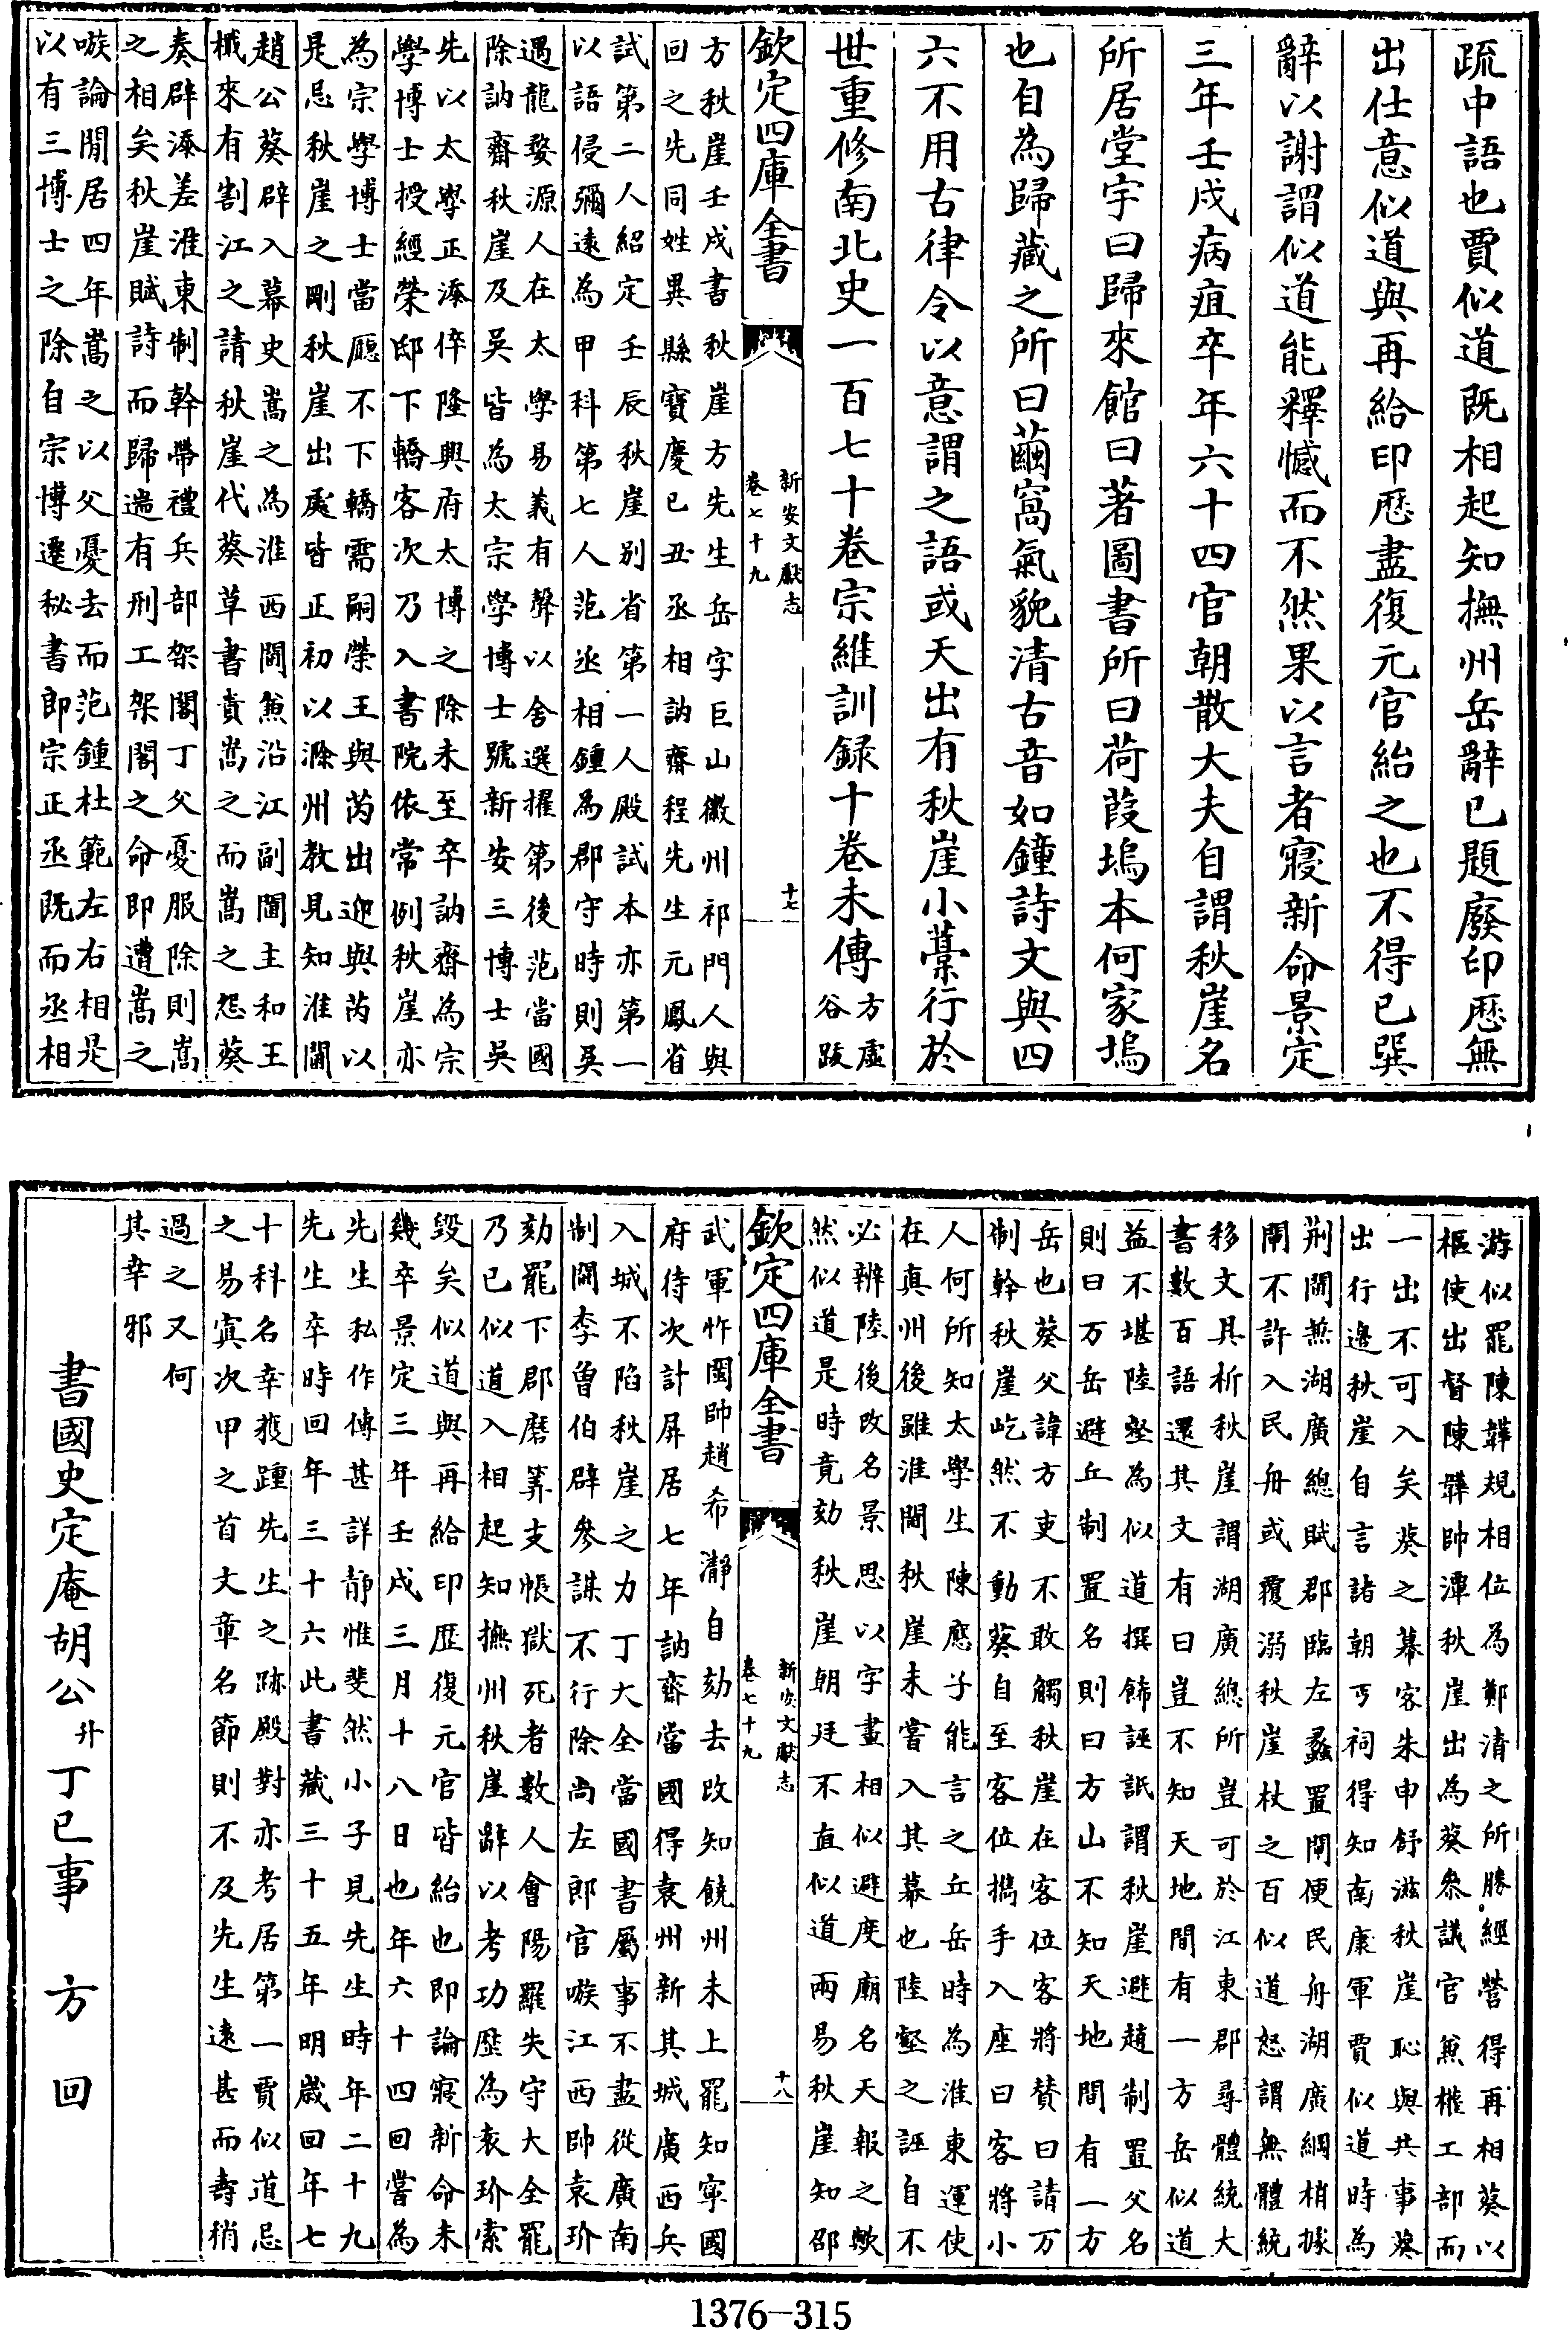 疏中語也賈似道既相起知撫州岳辭已題廢印厯無
出仕意似道與再給印厯盡復元官紿之也不得已巽
辭以謝謂似道能釋憾而不然果以言者寢新命景定
三年壬戌病疽卒年六十四官朝散大夫自謂秋崖名
所居堂宇曰歸來館曰著圖書所曰荷葭塢本何家塢
也自為歸藏之所曰繭窩氣貌清古音如鐘詩文與四
六不用古律令以意謂之語或天出有秋崖小藁行於
世重修南北史一百七十卷宗維訓録十卷未傳方虛谷跋
欽定四庫全書
新安文獻志
卷七十九
十七
方秋崖壬戌書秋崖方先生岳字巨山徽州祁門人與
回之先同姓異縣寶慶已丑丞相訥齋程先生元鳳省
試第二人紹定壬辰秋崖别省第一人殿試本亦第一
以語侵彌遠為甲科第七人范丞相鍾為郡守時則吳
遇龍婺源人在太學易義有聲以舍選擢第後范當國
除訥齋秋崖及吳皆為太宗學博士號新安三博士吳
先以太學正添倅隆興府太博之除未至卒訥齋為宗
學博士授經榮邸下轎客次乃入書院依常例秋崖亦
為宗學博士當廳不下轎需嗣榮王與芮出迎與芮以
是忌秋崖之剛秋崖出處皆正初以滁州教見知淮閫
趙公葵辟入幕史嵩之為淮西閫兼沿江副閫主和王
檝來有割江之請秋崖代葵草書責嵩之而嵩之怨葵
奏辟添差淮東制幹帶禮兵部架閣丁父憂服除則嵩
之相矣秋崖賦詩而歸遄有刑工架閣之命即遭嵩之
嗾論閒居四年嵩之以父憂去而范鍾杜範左右相是
以有三博士之除自宗博遷秘書郎宗正丞既而丞相
游似罷陳韡規相位為鄭清之所勝經營得再相葵以
樞使出督陳韡帥潭秋崖出為葵叅議官兼權工部而
一出不可入矣葵之幕客朱申舒滋秋崖恥與共事葵
出行邊秋崖自言諸朝丐祠得知南康軍賈似道時為
荆閫兼湖廣總賦郡臨左蠡置閘便民舟湖廣綱梢據
閘不許入民舟或覆溺秋崖杖之百似道怒謂無體統
移文具析秋崖謂湖廣總所豈可於江東郡尋體統大
書數百語還其文有曰豈不知天地間有一方岳似道
益不堪陸壑為似道撰飾誣詆謂秋崖避趙制置父名
則曰万岳避丘制置名則曰方山不知天地間有一方
岳也葵父諱方吏不敢觸秋崖在客位客將贊曰請万
制幹秋崖屹然不動葵自至客位攜手入座曰客將小
人何所知太學生陳應子能言之丘岳時為淮東運使
在真州後雖淮閫秋崖未嘗入其幕也陸壑之誣自不
必辨陸後改名景思以字畫相似避度廟名天報之歟
然似道是時竟劾秋崖朝廷不直似道兩易秋崖知邵
欽定四庫全書
新安文獻志
卷七十九
十八
武軍忤閩帥趙希瀞自劾去改知饒州未上罷知寧國
府待次計屏居七年訥齋當國得袁州新其城廣西兵
入城不陷秋崖之力丁大全當國書屬事不盡從廣南
制閫李曾伯辟參謀不行除尚左郎官嗾江西帥袁玠
劾罷下郡磨筭支帳獄死者數人會陽羅失守大全罷
乃已似道入相起知撫州秋崖辭以考功厯為袁玠索
毀矣似道與再給印厯復元官皆紿也即論寢新命未
幾卒景定三年壬戌三月十八日也年六十四回嘗為
先生私作傳甚詳静惟斐然小子見先生時年二十九
先生卒時回年三十六此書藏三十五年明歲回年七
十科名幸獲踵先生之跡殿對亦考居第一賈似道忌
之易寘次甲之首文章名節則不及先生遠甚而壽稍
過之又何
其幸邪
書國史定庵胡公升丁已事　方回
1376-315